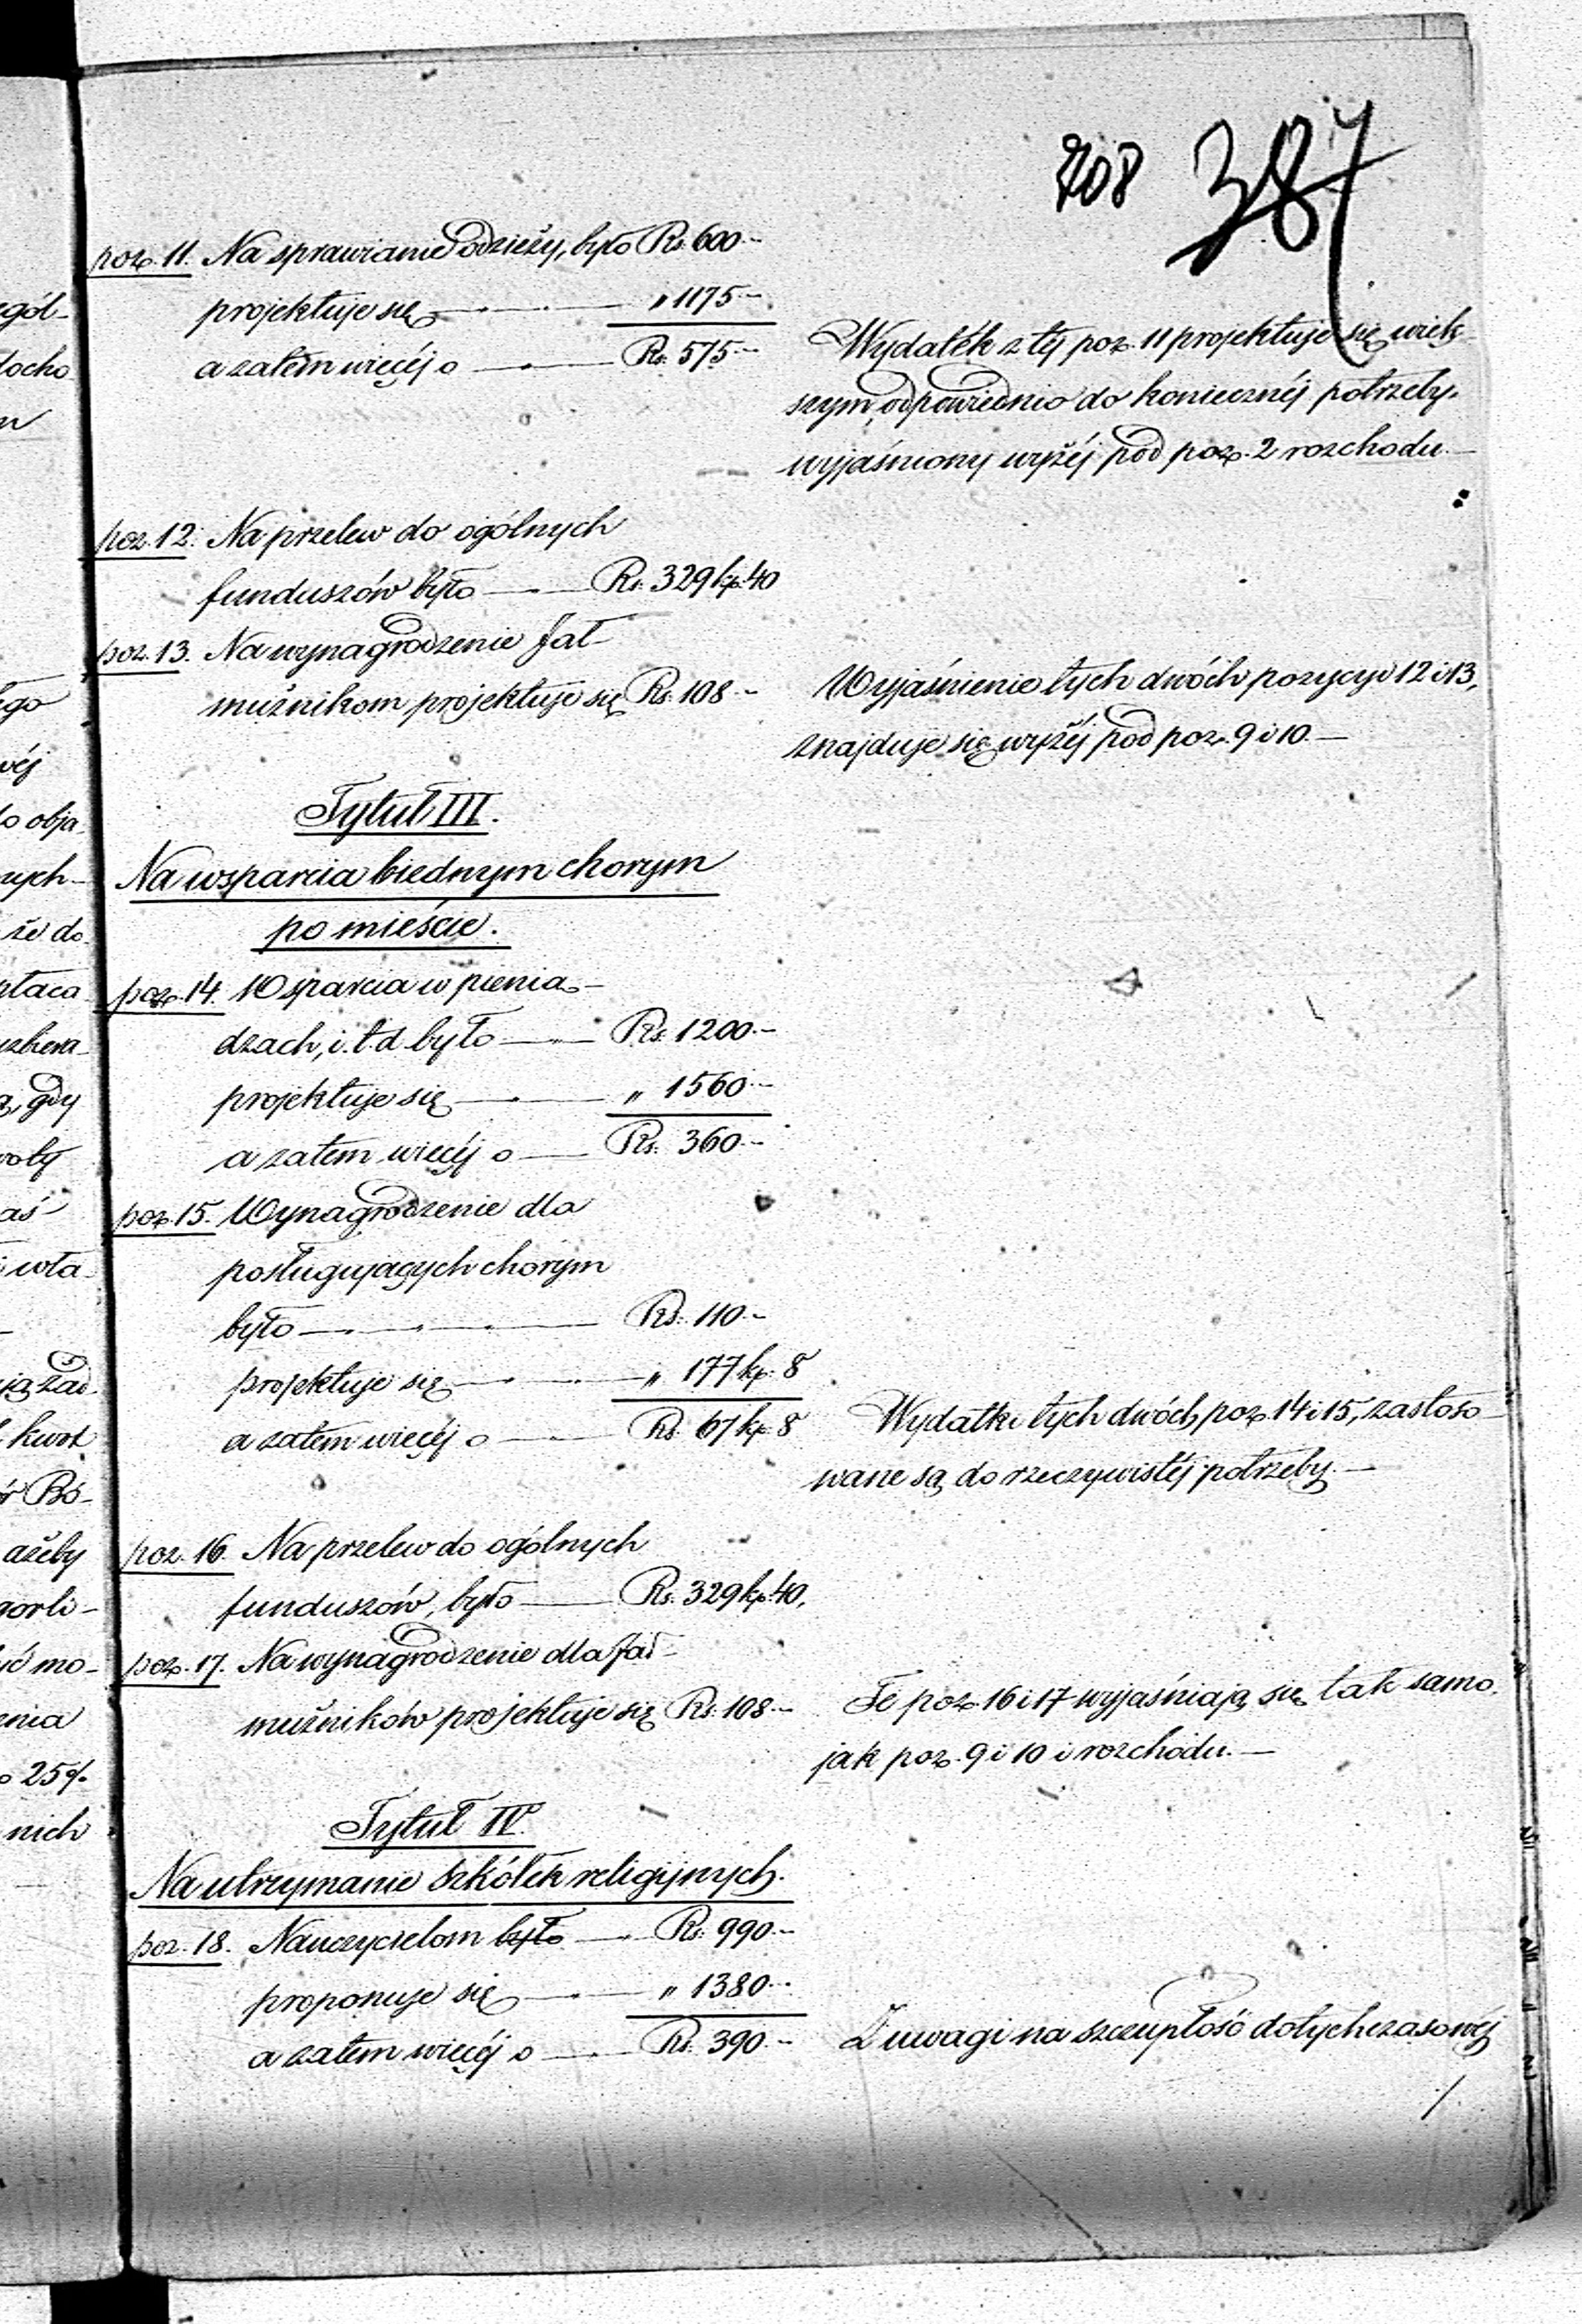 708 387
poz. 11. Na sprawianie odzieży, było Rs. 600.–
projektuje się — „ 1175.–
a zatem więcéj o — Rs. 575.–
Wydatek z téj poz. 11 projektuje się więk-
szym, odpowiednio do koniecznéj potrzeby,
wyjaśniony wyżéj pod poz. 2 rozchodu.—
poz. 12. Na przelew do ogólnych
funduszów było — Rs. 329 kp. 40
poz. 13. Na wynagrodzenie Jał-
mużnikom projektuje się Rs. 108.–
Wyjaśnienie tych dwóch pozycyi 12 i 13,
znajduje się wyżéj pod poz. 9 i 10.—
Tytuł III.
Na wsparcia biednym chorym
po mieście.
poz. 14. Wsparcia w pienią-
dzach, i. t. d było — Rs. 1200.–
projektuje się — „ 1560.–
a zatem więcéj o — Rs. 360.–
poz. 15. Wynagrodzenie dla
posługujących chorym
było — Rs. 110.–
projektuje się — „ 177 kp. 8
a zatem więcéj o — Rs. 67 kp. 8
Wydatki tych dwóch poz. 14 i 15, zastoso-
wane są do rzeczywistéj potrzeby.—
poz. 16. Na przelew do ogólnych
funduszów, było — Rs. 329 kp. 40,
poz. 17. Na wynagrodzenie dla Jał-
mużników projektuje się Rs. 108.–
Te poz. 16 i 17 wyjaśniają się tak samo,
jak poz. 9 i 10 i rozchodu.—
Tytuł IV.
Na utrzymanie szkółek religijnych.
poz. 18. Nauczycielom było — Rs. 990.–
proponuje się — „ 1380.–
a zatem więcéj o — Rs. 390.–
Z uwagi na szczupłość dotychczasowéj
./.